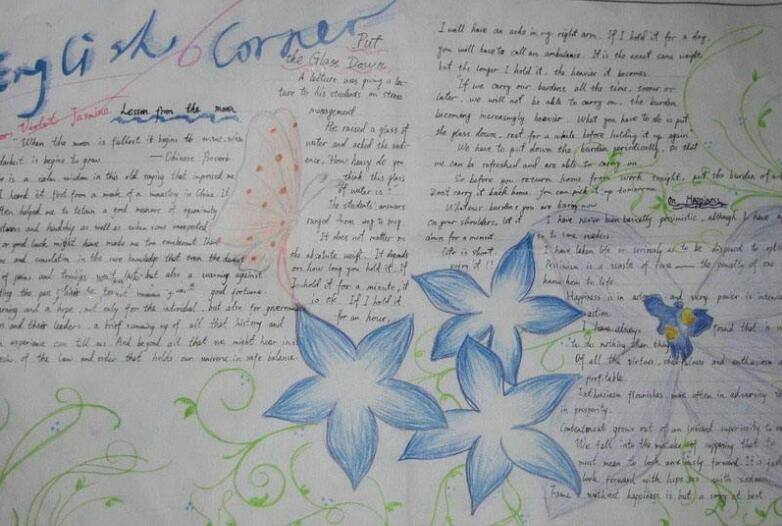 English Corner
Violet Jasmine
Lesson from the moon
When the moon is fullest it begins to wane, when
darkest it begins to grow. — Chinese Proverb
is a calm wisdom in this old saying that impressed me
I heard it first from a monk of a monastery in China. It
often helped me to retain a good measure of equanimity
and hardship as well as when some unexpected
or good luck might have made me too exuberant.
and consolation in the sure knowledge that even the
of pains and but also a warning against
good fortune.
and a hope, not only for the individual, but also for
and their leaders, a brief summing up of all that history and
experience can tell us. And beyond all that we might hear
of the law and order that holds our universe in safe balance.
Put
the Glass Down
A lecture was giving a lec-
ture to his students on stress
management.
He raised a glass of
water and asked the audi-
ence, "How heavy do you
think this glass
of water is"
The students' answers
ranged from
It does not matter on
the absolute weight. It depends
on how long you hold it. If
I hold it for a minute, it
is ok. If I hold it
for an hour,
I will have an ache in my right arm. If I hold it for a day,
you will have to call an ambulance. It is the exact same weight,
but the longer I hold it, the heavier it becomes.
"If we carry our burdens all the time, sooner or
later, we will not be able to carry on, the burden
becoming increasingly heavier. What you have to do is put
the glass down, rest for a while before holding it up again.
We have to put down the burden periodically, so that
we can be refreshed and are able to carry on.
So before you return home from work tonight, put the burden of
Don't carry it back home. You can pick it up tomorrow.
Whatever burdens you are having now
on your shoulders, let it
down for a minute.
Life is short.
enjoy it !!
On Happiness
I have never been basically pessimistic, although I have
to some readers
I have taken life as seriously as to be disposed to
Pessimism is a waste of force — the penalty of one
know how to life.
Happiness is in and every power is
I have always found that
to do nothing than
Of all the virtues, cheerfulness and enthusiasm
profitable.
Enthusiasm flourishes more often in adversity
in prosperity.
Contentment grows out of an inward superiority to
We fall into the mistake of supposing that
must mean to look anxiously forward. It is
look forward with hope as with sadness
Fame without happiness is but a sorry at best